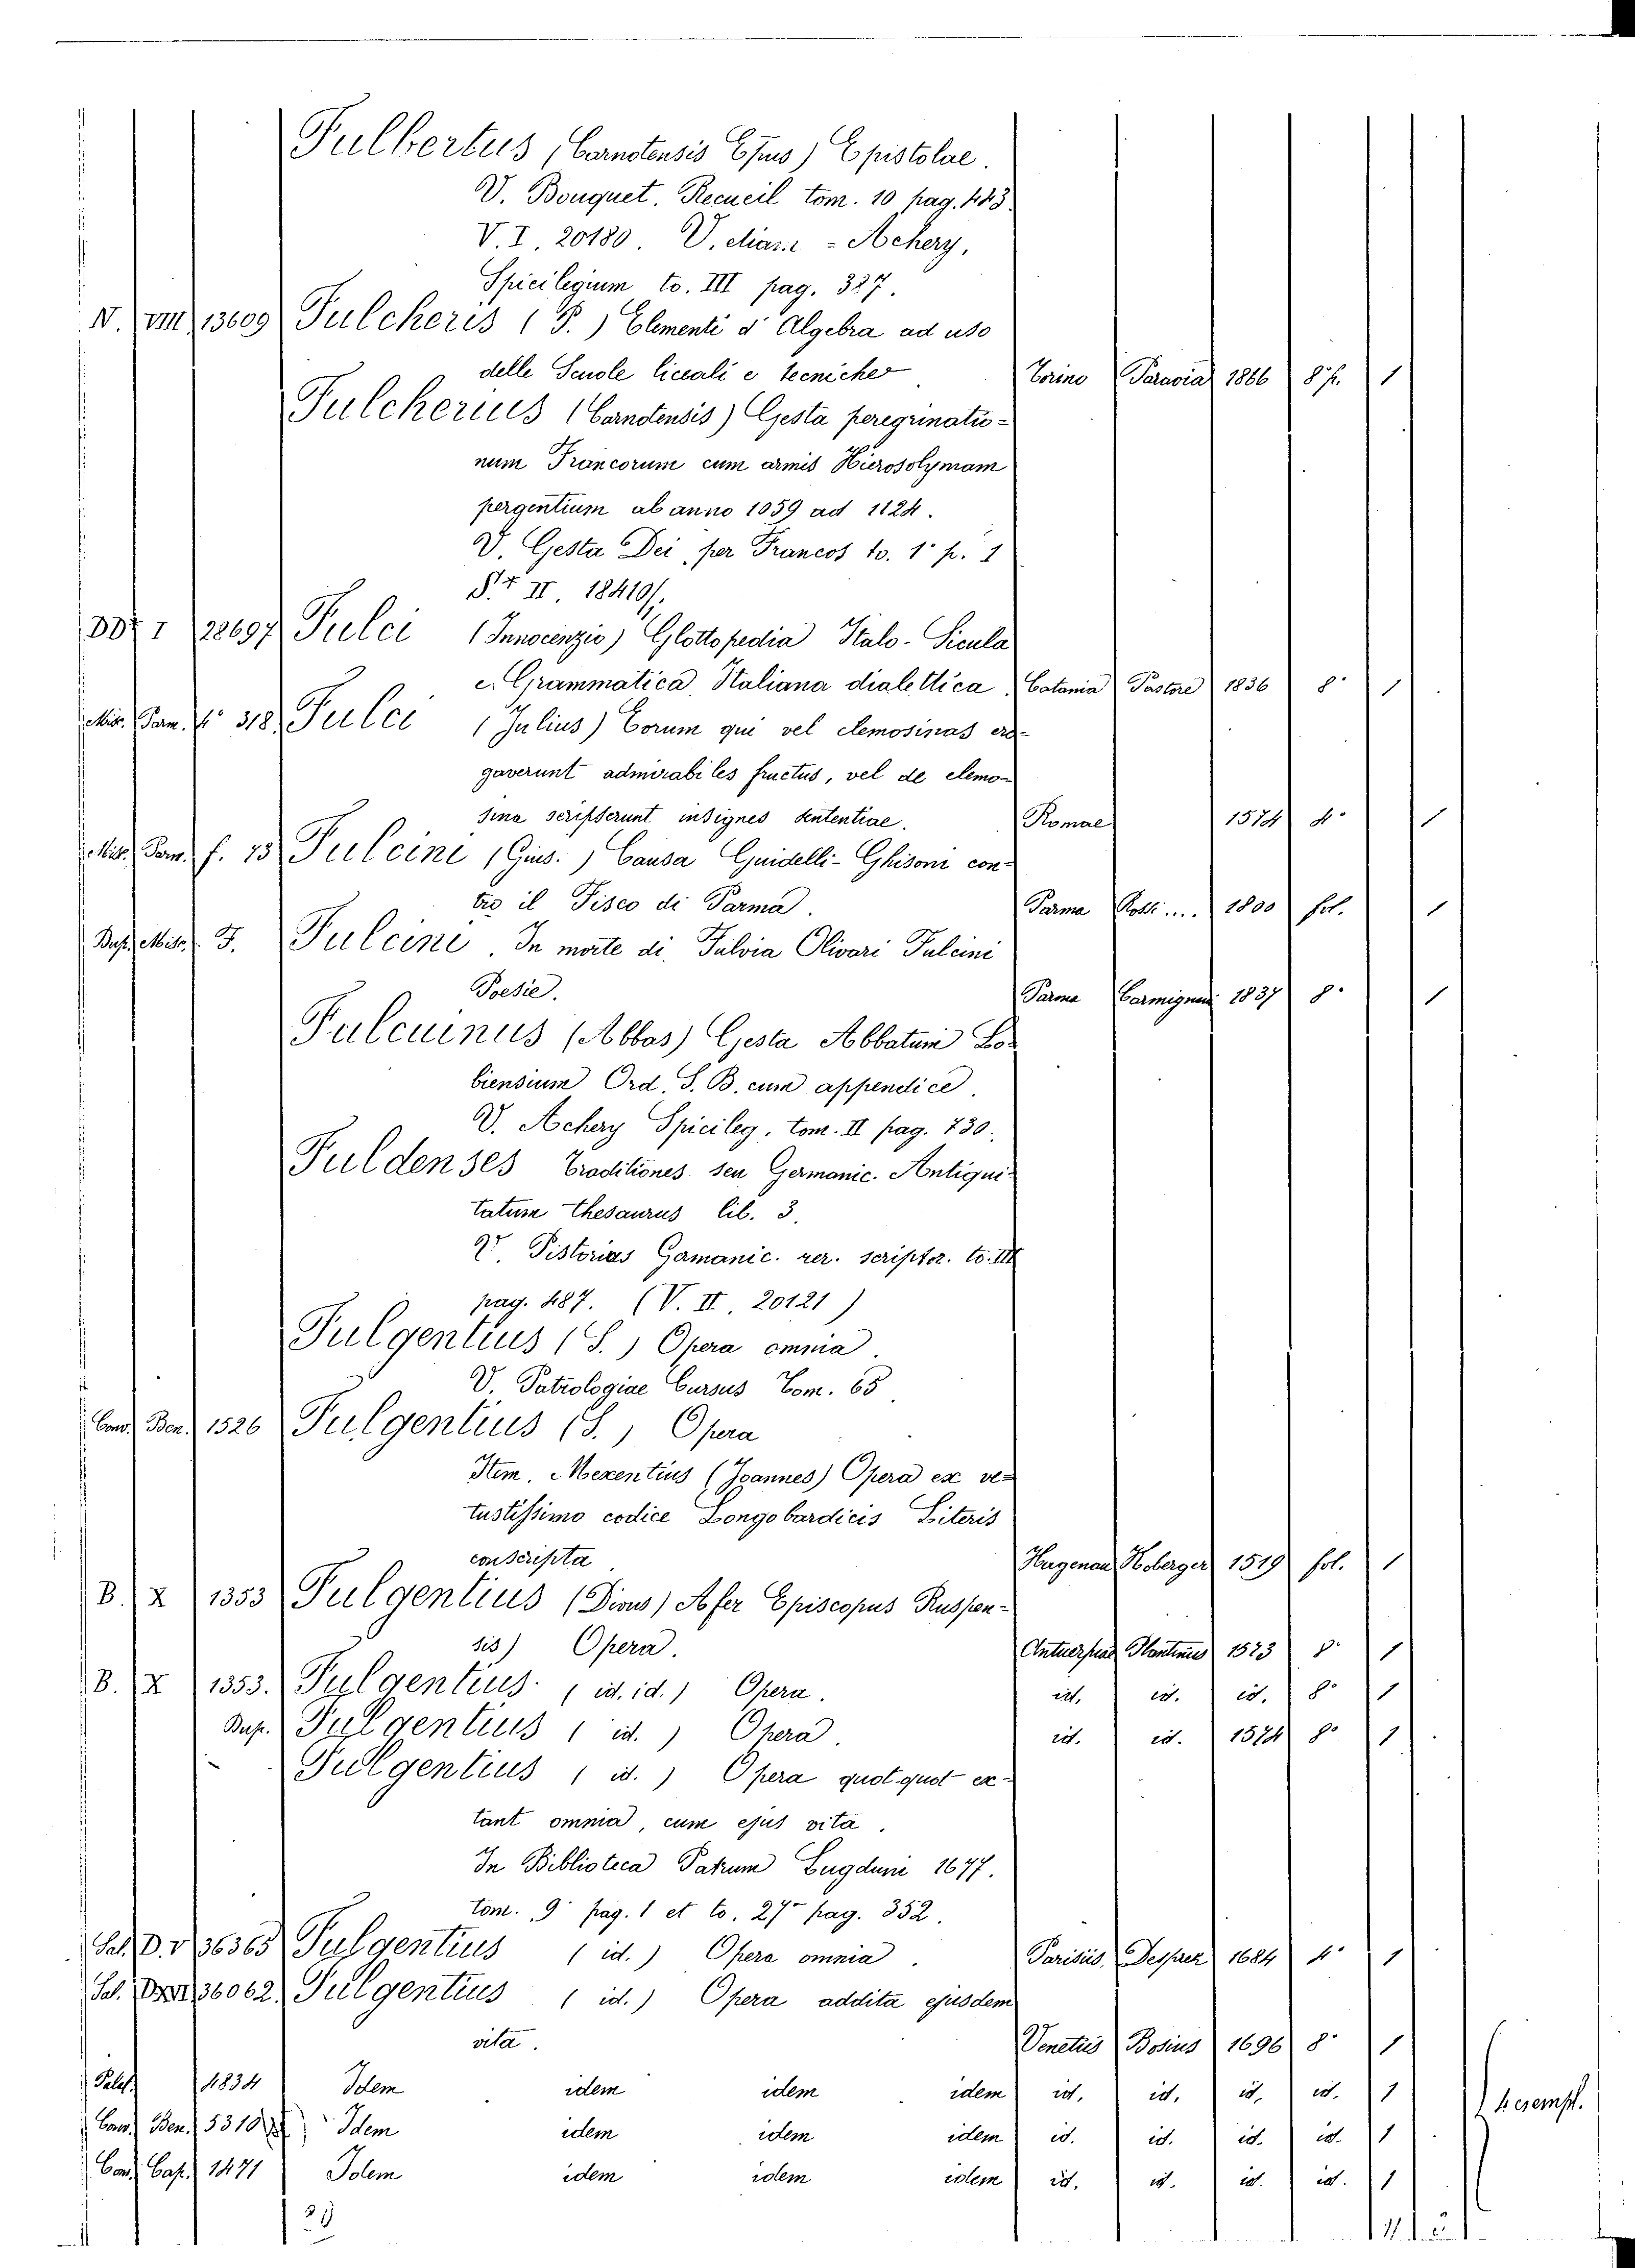 Fulbertus (Carnotensis Epus) Epistolae.
V. Bouquet. Recueil tom. 10 pag. 443.
V. I. 20180. V. etiam = Achery,
Spicilegium to. III pag. 387.
IV. VIII 13609 Fulcheris (P.) Elementi d'Algebra ad uso
delle Scuole liceali e tecniche Torino Paravia 1866 8° p. 1
Fulcherius (Carnotensis) Gesta peregrinatio=
num Francorum cum armis Hierosolymam
pergentium ab anno 1059 ad 1124.
V. Gesta Dei per Francos to. 1° p. 1
II. 18410/1.
I 28697 Fulci (Innocenzio) Glottopedia Italo-Sicula
e Grammatica Italiana dialettica. Catania Pastore 1836 8° 1
Misc. Parm. 4° 318 Fulci (Julius) Eorum qui vel elemosinas ero=
gaverunt admirabiles fructus, vel de elemo=
sina scripserunt insignes sententiae. Romae 1574 4° 1
Misc. Parm. f. 15 Fulcini (Gius.) Causa Guidelli-Ghisoni con=
tro il Fisco di Parma. Parma Rossi .... 1800 fol. 1
Dup. Misc. F. Fulcini. In morte di Fulvia Olivari Fulcini
Poesie. Parma Carmignani 1837 8° 1
Fulcuinus (Abbas) Gesta Abbatum Lo=
biensium Ord. S. B. cum appendice.
V. Achery Spicileg. tom. II pag. 730.
Fuldenses Traditiones seu Germanic. Antiqui=
tatum thesaurus lib. 3.
V. Pistorius Germanic. rer. scriptor. to. III
pag. 487. (V. II. 20121)
Fulgentius (S.) Opera omnia.
V. Patrologiae Cursus Tom. 65
Conv. Ben. 1526 Fulgentius (S.) Opera
Item. Mexentius (Joannes) Opera ex ve=
tustissimo codice Longobardicis Literis
conscripta Hagenau Koberger 1519 fol. 1
B. X 1353 Fulgentius (Divus) Afer Episcopus Ruspen=
sis) Opera. Antuerpiae Plantinus 1573 8° 1
B. X 1353. Fulgentius (id. id.) Opera. id. id. id. 8° 1
Dup. Fulgentius (id.) Opera. id. id. 1574 8° 1
Fulgentius (id.) Opera quotquot ex=
tant omnia, cum ejus vita.
In Biblioteca Patrum Lugduni 1677.
tom. 9° pag. 1 et to. 27° pag. 352.
Sal. D. V 36365 Fulgentius (id.) Opera omnia. Parisiis. Desprez 1684 4° 1
Sal. 36062 Fulgentius (id.) Opera addita ejusdem
vita. Venetiis Bosius 1696 8° 1
Palat. 4834 Idem idem idem idem id. id. id. id. 1
Conv. Ben. 5310 Idem idem idem idem id. id. id. id. 1
Conv. Cap. 1471 Idem idem idem idem id. id. id. id. 1
4 esempl.
29